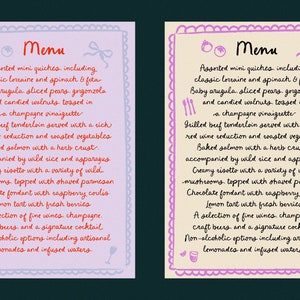 Menu
Assorted mini quiches, including
classic lorraine and spinach & feta
Baby arugula, sliced pears, gorgonzola
and candied walnuts, tossed in
a champagne vinaigrette
Grilled beef tenderloin served with a rich
red wine reduction and roasted vegetables
Baked salmon with a herb crust,
accompanied by wild rice and asparagus
Creamy risotto with a variety of wild
mushrooms, topped with shaved parmesan
Chocolate fondant with raspberry coulis
Lemon tart with fresh berries
A selection of fine wines, champagne,
craft beers, and a signature cocktail
Non-alcoholic options including artisanal
lemonades and infused waters
Menu
Assorted mini quiches, including
classic lorraine and spinach & feta
Baby arugula, sliced pears, gorgonzola
and candied walnuts, tossed in
a champagne vinaigrette
Grilled beef tenderloin served with a rich
red wine reduction and roasted vegetables
Baked salmon with a herb crust,
accompanied by wild rice and asparagus
Creamy risotto with a variety of wild
mushrooms, topped with shaved parmesan
Chocolate fondant with raspberry coulis
Lemon tart with fresh berries
A selection of fine wines, champagne,
craft beers, and a signature cocktail
Non-alcoholic options including artisanal
lemonades and infused waters